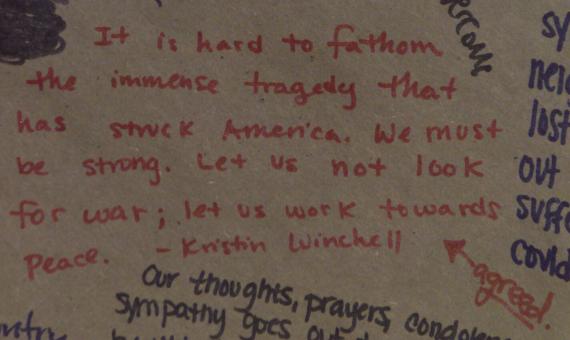 It is hard to fathom
the immense tragedy that
has struck America. We must
be strong. Let us not look
for war; let us work towards
Peace. - Kristin Winchell
agreed.
Our thoughts, prayers,
sympathy goes
lost
out